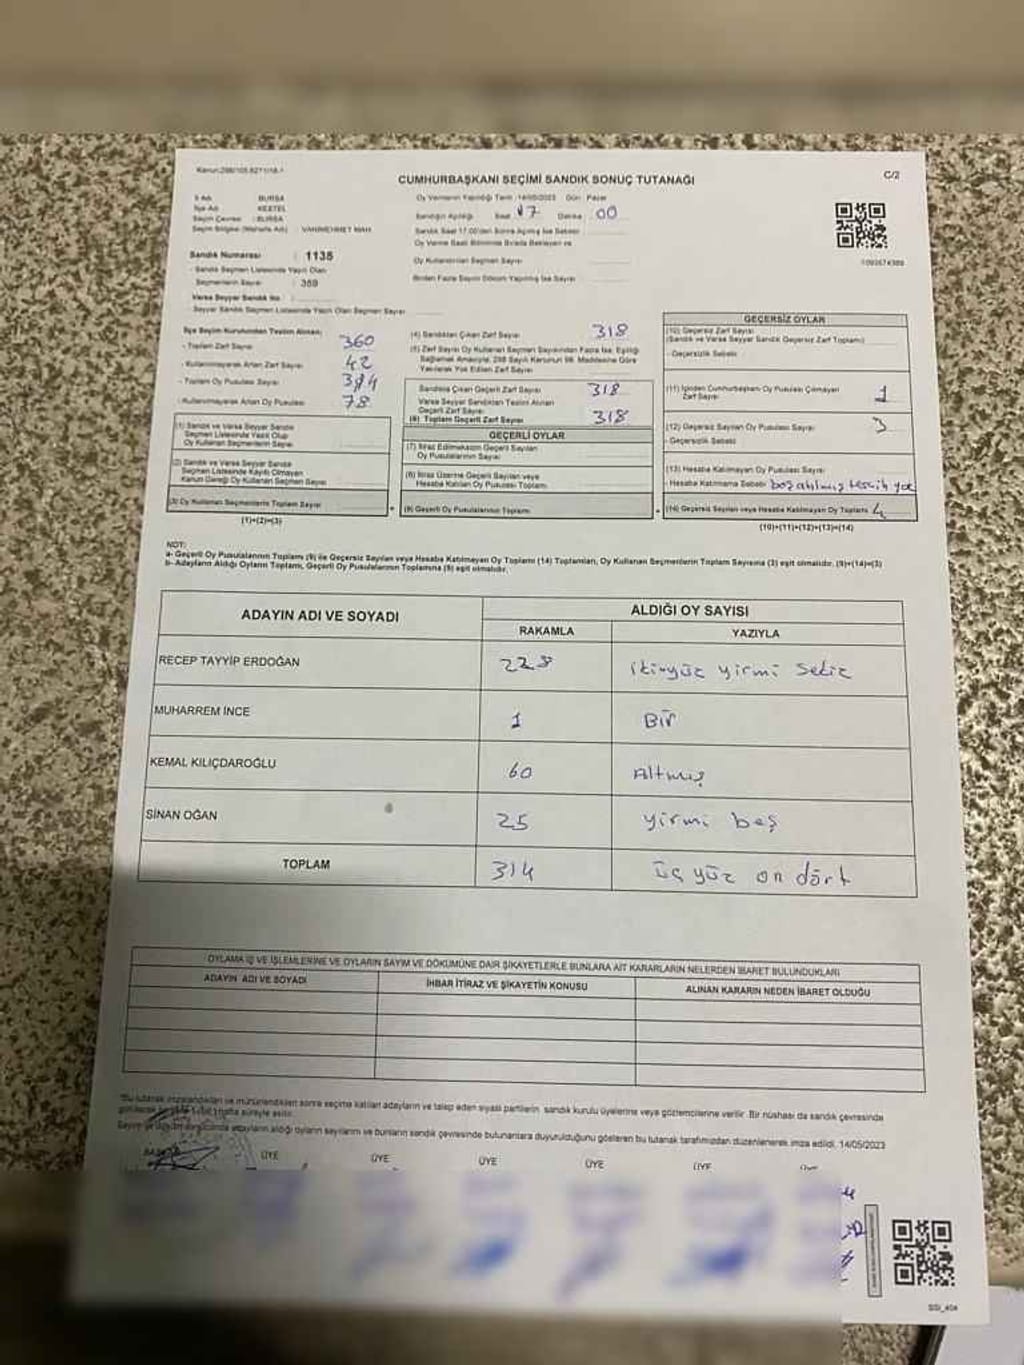 Kanun:298/105.6271/16.1
C/2
CUMHURBAŞKANI SEÇİMİ SANDIK SONUÇ TUTANAĞI
İl Adı BURSA
İlçe Adı KESTEL
Seçim Çevresi : BURSA
Seçim Bölgesi (Mahalle Adı) : VANİMEHMET MAH.
Sandık Numarası : 1135
- Sandık Seçmen Listesinde Yazılı Olan
Seçmenlerin Sayısı : 359
Varsa Seyyar Sandık No :
- Seyyar Sandık Seçmen Listesinde Yazılı Olan Seçmen Sayısı
Oy Vermenin Yapıldığı Tarih :14/05/2023 Gün : Pazar
Sandığın Açılışı Saat : 17 Dakika : 00
Sandık Saat 17.00'den Sonra Açılmış İse Sebebi
Oy Verme Saati Bitiminde Sırada Bekleyen ve
Oy Kullandırılan Seçmen Sayısı
Birden Fazla Sayım Döküm Yapılmış İse Sayısı
İlçe Seçim Kurulundan Teslim Alınan;
- Toplam Zarf Sayısı 360
- Kullanılmayarak Artan Zarf Sayısı 42
- Toplam Oy Pusulası Sayısı
- Kullanılmayarak Artan Oy Pusulası 78
(1) Sandık ve Varsa Seyyar Sandık
Seçmen Listesinde Yazılı Olup
Oy Kullanan Seçmenlerin Sayısı
(2) Sandık ve Varsa Seyyar Sandık
Seçmen Listesinde Kayıtlı Olmayan
Kanun Gereği Oy Kullanan Seçmen Sayısı
(3) Oy Kullanan Seçmenlerin Toplam Sayısı
(1)+(2)=(3)
(4) Sandıktan Çıkan Zarf Sayısı 318
(5) Zarf Sayısı Oy Kullanan Seçmen Sayısından Fazla İse, Eşitliği
Sağlamak Amacıyla, 298 Sayılı Kanunun 98. Maddesine Göre
Yakılarak Yok Edilen Zarf Sayısı
Sandıkta Çıkan Geçerli Zarf Sayısı 318
Varsa Seyyar Sandıktan Teslim Alınan
Geçerli Zarf Sayısı
(6) Toplam Geçerli Zarf Sayısı 318
GEÇERLİ OYLAR
(7) İtiraz Edilmeksizin Geçerli Sayılan
Oy Pusulalarının Sayısı
(8) İtiraz Üzerine Geçerli Sayılan veya
Hesaba Katılan Oy Pusulası Toplamı
(9) Geçerli Oy Pusulalarının Toplamı
GEÇERSİZ OYLAR
(10) Geçersiz Zarf Sayısı
(Sandık ve Varsa Seyyar Sandık Geçersiz Zarf Toplamı)
- Geçersizlik Sebebi
(11) İçinden Cumhurbaşkanı Oy Pusulası Çıkmayan
Zarf Sayısı 1
(12) Geçersiz Sayılan Oy Pusulası Sayısı 3
- Geçersizlik Sebebi
(13) Hesaba Katılmayan Oy Pusulası Sayısı
- Hesaba Katılmama Sebebi boş atılmış tercih yok
(14) Geçersiz Sayılan veya Hesaba Katılmayan Oy Toplamı 4
(10)+(11)+(12)+(13)=(14)
NOT:
a- Geçerli Oy Pusulalarının Toplamı (9) ile Geçersiz Sayılan veya Hesaba Katılmayan Oy Toplamı (14) Toplamları, Oy Kullanan Seçmenlerin Toplam Sayısına (3) eşit olmalıdır. (9)+(14)=(3)
b- Adayların Aldığı Oyların Toplamı, Geçerli Oy Pusulalarının Toplamına (9) eşit olmalıdır.
ADAYIN ADI VE SOYADI
ALDIĞI OY SAYISI
RAKAMLA YAZIYLA
RECEP TAYYİP ERDOĞAN 228 ikiyüz yirmi sekiz
MUHARREM İNCE 1 Bir
KEMAL KILIÇDAROĞLU 60 Altmış
SİNAN OĞAN 25 yirmi beş
TOPLAM 314 üç yüz on dört
OYLAMA İŞ VE İŞLEMLERİNE VE OYLARIN SAYIM VE DÖKÜMÜNE DAİR ŞİKAYETLERLE BUNLARA AİT KARARLARIN NELERDEN İBARET BULUNDUKLARI
ADAYIN ADI VE SOYADI İHBAR İTİRAZ VE ŞİKAYETİN KONUSU ALINAN KARARIN NEDEN İBARET OLDUĞU
"Bu tutanak imzalandıktan ve mühürlendikten sonra seçime katılan adayların ve talep eden siyasi partilerin sandık kurulu üyelerine veya gözlemcilerine verilir. Bir nüshası da sandık çevresinde
hafta süreyle asılır.
adayların aldığı oyların sayılarını ve bunların sandık çevresinde bulunanlara duyurulduğunu gösteren bu tutanak tarafımızdan düzenlenerek imza edildi. 14/05/2023
ÜYE ÜYE ÜYE ÜYE ÜYE